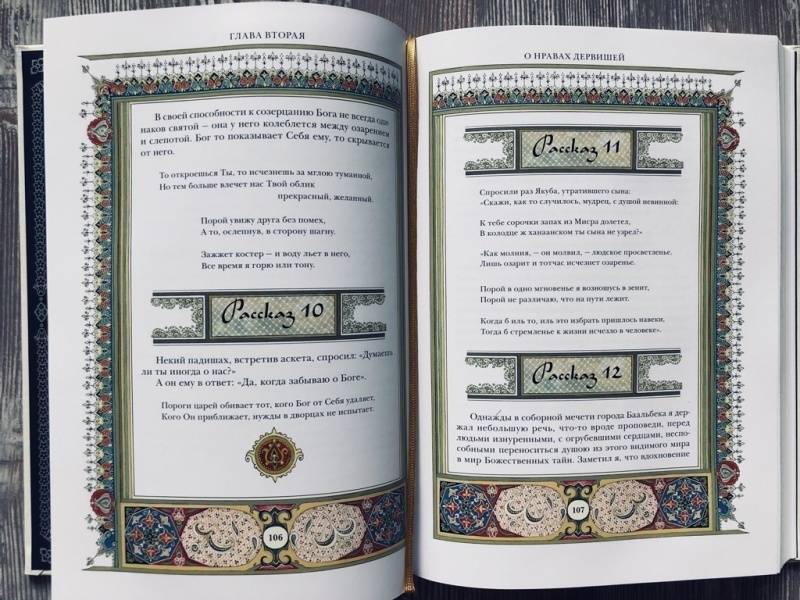 ГЛАВА ВТОРАЯ
В своей способности к созерцанию Бога не всегда оди-
наков святой — она у него колеблется между озарением
и слепотой. Бог то показывает Себя ему, то скрывается
от него.
То откроешься Ты, то исчезнешь за мглою туманной,
Но тем больше влечет нас Твой облик
прекрасный, желанный.
Порой увижу друга без помех,
А то, ослепнув, в сторону шагну.
Зажжет костер — и воду льет в него,
Все время я горю или тону.
Рассказ 10
Некий падишах, встретив аскета, спросил: «Думаешь
ли ты иногда о нас?»
А он ему в ответ: «Да, когда забываю о Боге».
Пороги царей обивает тот, кого Бог от Себя удаляет,
Кого Он приближает, нужды в дворцах не испытает.
106
О НРАВАХ ДЕРВИШЕЙ
Рассказ 11
Спросили раз Якуба, утратившего сына:
«Скажи, как то случилось, мудрец, с душой невинной:
К тебе сорочки запах из Мисра долетел,
В колодце ж ханаанском ты сына не узрел?»
«Как молния, — он молвил, — людское просветленье.
Лишь озарит и тотчас исчезнет озаренье.
Порой в одно мгновенье я возношусь в зенит,
Порой не различаю, что на пути лежит.
Когда б иль то, иль это избрать пришлось навеки,
Тогда б стремленье к жизни исчезло в человеке».
Рассказ 12
Однажды в соборной мечети города Баальбека я дер-
жал небольшую речь, что-то вроде проповеди, перед
людьми изнуренными, с огрубевшими сердцами, неспо-
собными переноситься душою из этого видимого мира
в мир Божественных тайн. Заметил я, что вдохновение
107